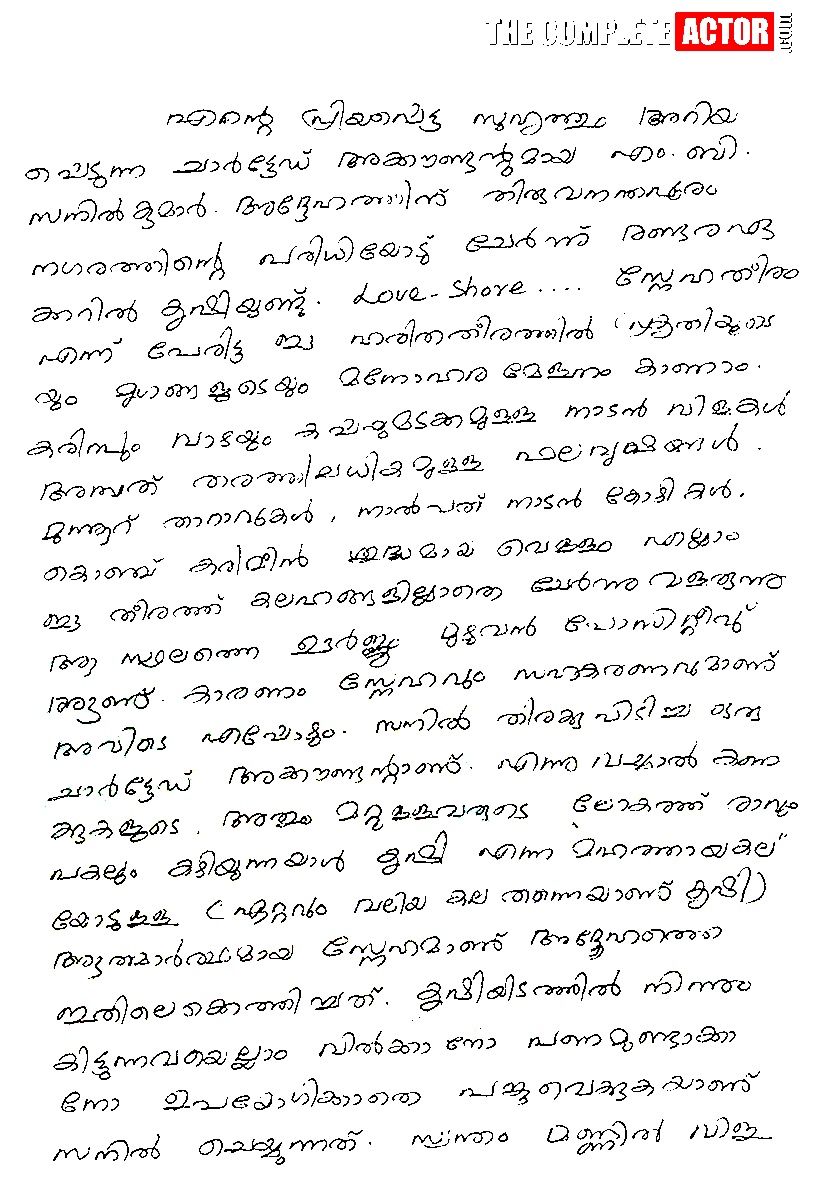 THE COMPLETE ACTOR
എന്റെ പ്രിയപ്പെട്ട സുഹൃത്തും അറിയ
പ്പെടുന്ന ചാർട്ടേഡ് അക്കൗണ്ടന്റുമായ എം. ബി.
സനിൽകുമാർ. അദ്ദേഹത്തിന് തിരുവനന്തപുരം
നഗരത്തിന്റെ പരിധിയോട് ചേർന്ന് രണ്ടരഏ
ക്കറിൽ കൃഷിയുണ്ട്. Love-Shore.... സ്നേഹതീരം
എന്ന് പേരിട്ട ഈ ഹരിതതീരത്തിൽ പ്രകൃതിയുടെ
യും മൃഗങ്ങളുടെയും മനോഹര മേളനം കാണാം.
കരിമ്പും വാഴയും കപ്പയുമടക്കമുള്ള നാടൻ വിളകൾ
അമ്പത് തരത്തിലധികമുള്ള ഫലവൃക്ഷങ്ങൾ.
മുന്നൂറ് താറാവുകൾ, നാൽപത് നാടൻ കോഴികൾ.
കൊഞ്ച് കരിമീൻ ശുദ്ധമായ വെള്ളം എല്ലാം
ഈ തീരത്ത് കലഹങ്ങളില്ലാതെ ചേർന്നു വളരുന്നു
ആ സ്ഥലത്തെ ഊർജ്ജം മുഴുവൻ പോസിറ്റീവ്
ആണ്. കാരണം സ്നേഹവും സഹകരണവുമാണ്
അവിടെ എപ്പോഴും. സനിൽ തിരക്കു പിടിച്ച ഒരു
ചാർട്ടേഡ് അക്കൗണ്ടന്റാണ്. എന്നു വച്ചാൽ കണ
ക്കുകളുടെ, അതും മറ്റുള്ളവരുടെ ലോകത്ത് രാവും
പകലും കഴിയുന്നയാൾ കൃഷി എന്ന മഹത്തായകല
യോടുള്ള (ഏറ്റവും വലിയ കല തന്നെയാണ് കൃഷി)
ആത്മാർത്ഥമായ സ്നേഹമാണ് അദ്ദേഹത്തെ
ഇതിലെക്കെത്തിച്ചത്. കൃഷിയിടത്തിൽ നിന്നും
കിട്ടുന്നവയെല്ലാം വിൽക്കാനോ പണമുണ്ടാക്കാ
നോ ഉപയോഗിക്കാതെ പങ്കുവെക്കുകയാണ്
സനിൽ ചെയ്യുന്നത്. സ്വന്തം മണ്ണിൽ വിള